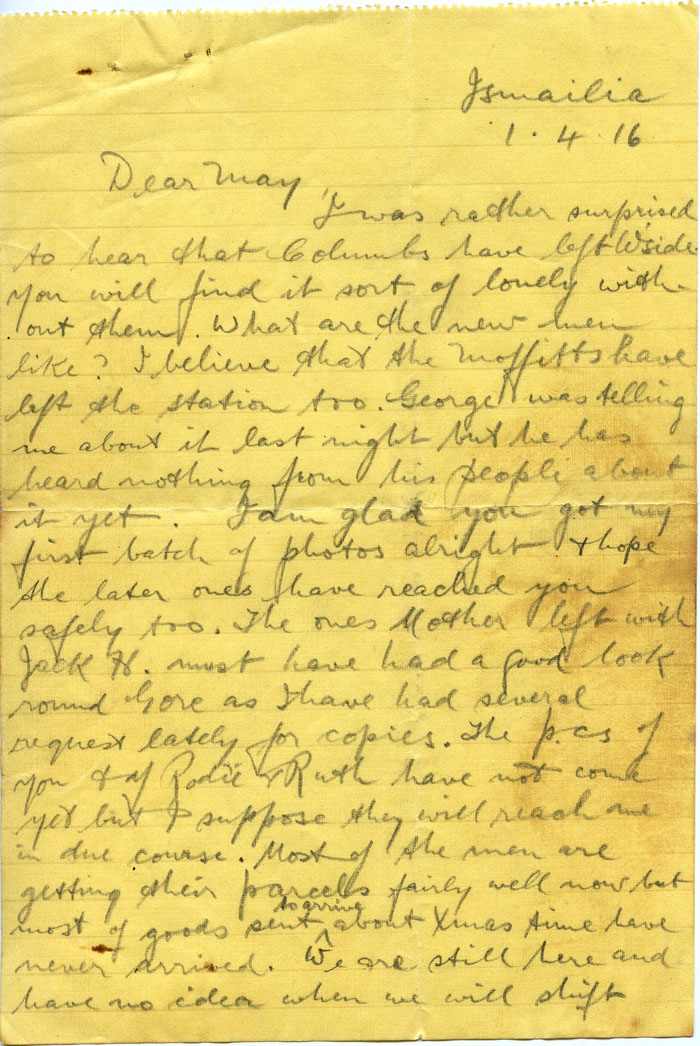 Ismailia
1.4.16
Dear May,
I was rather surprised
to hear that Columbs have left W'side.
You will find it sort of lonely with-
out them. What are the new men
like? I believe that the Moffitts have
left the station too. George was telling
me about it last night but he has
heard nothing from his people about
it yet. I am glad you got my
first batch of photos alright & hope
the later ones have reached you
safely too. The ones Mother left with
Jack H. must have had a good look
round Gore as I have had several
request lately for copies. The p.cs of
you & of Rodie & Ruth have not come
yet but I suppose they will reach me
in due course. Most of the men are
getting their parcels fairly well now but
most of goods sent to arrive about Xmas time have
never arrived. We are still here and
have no idea when we will shift